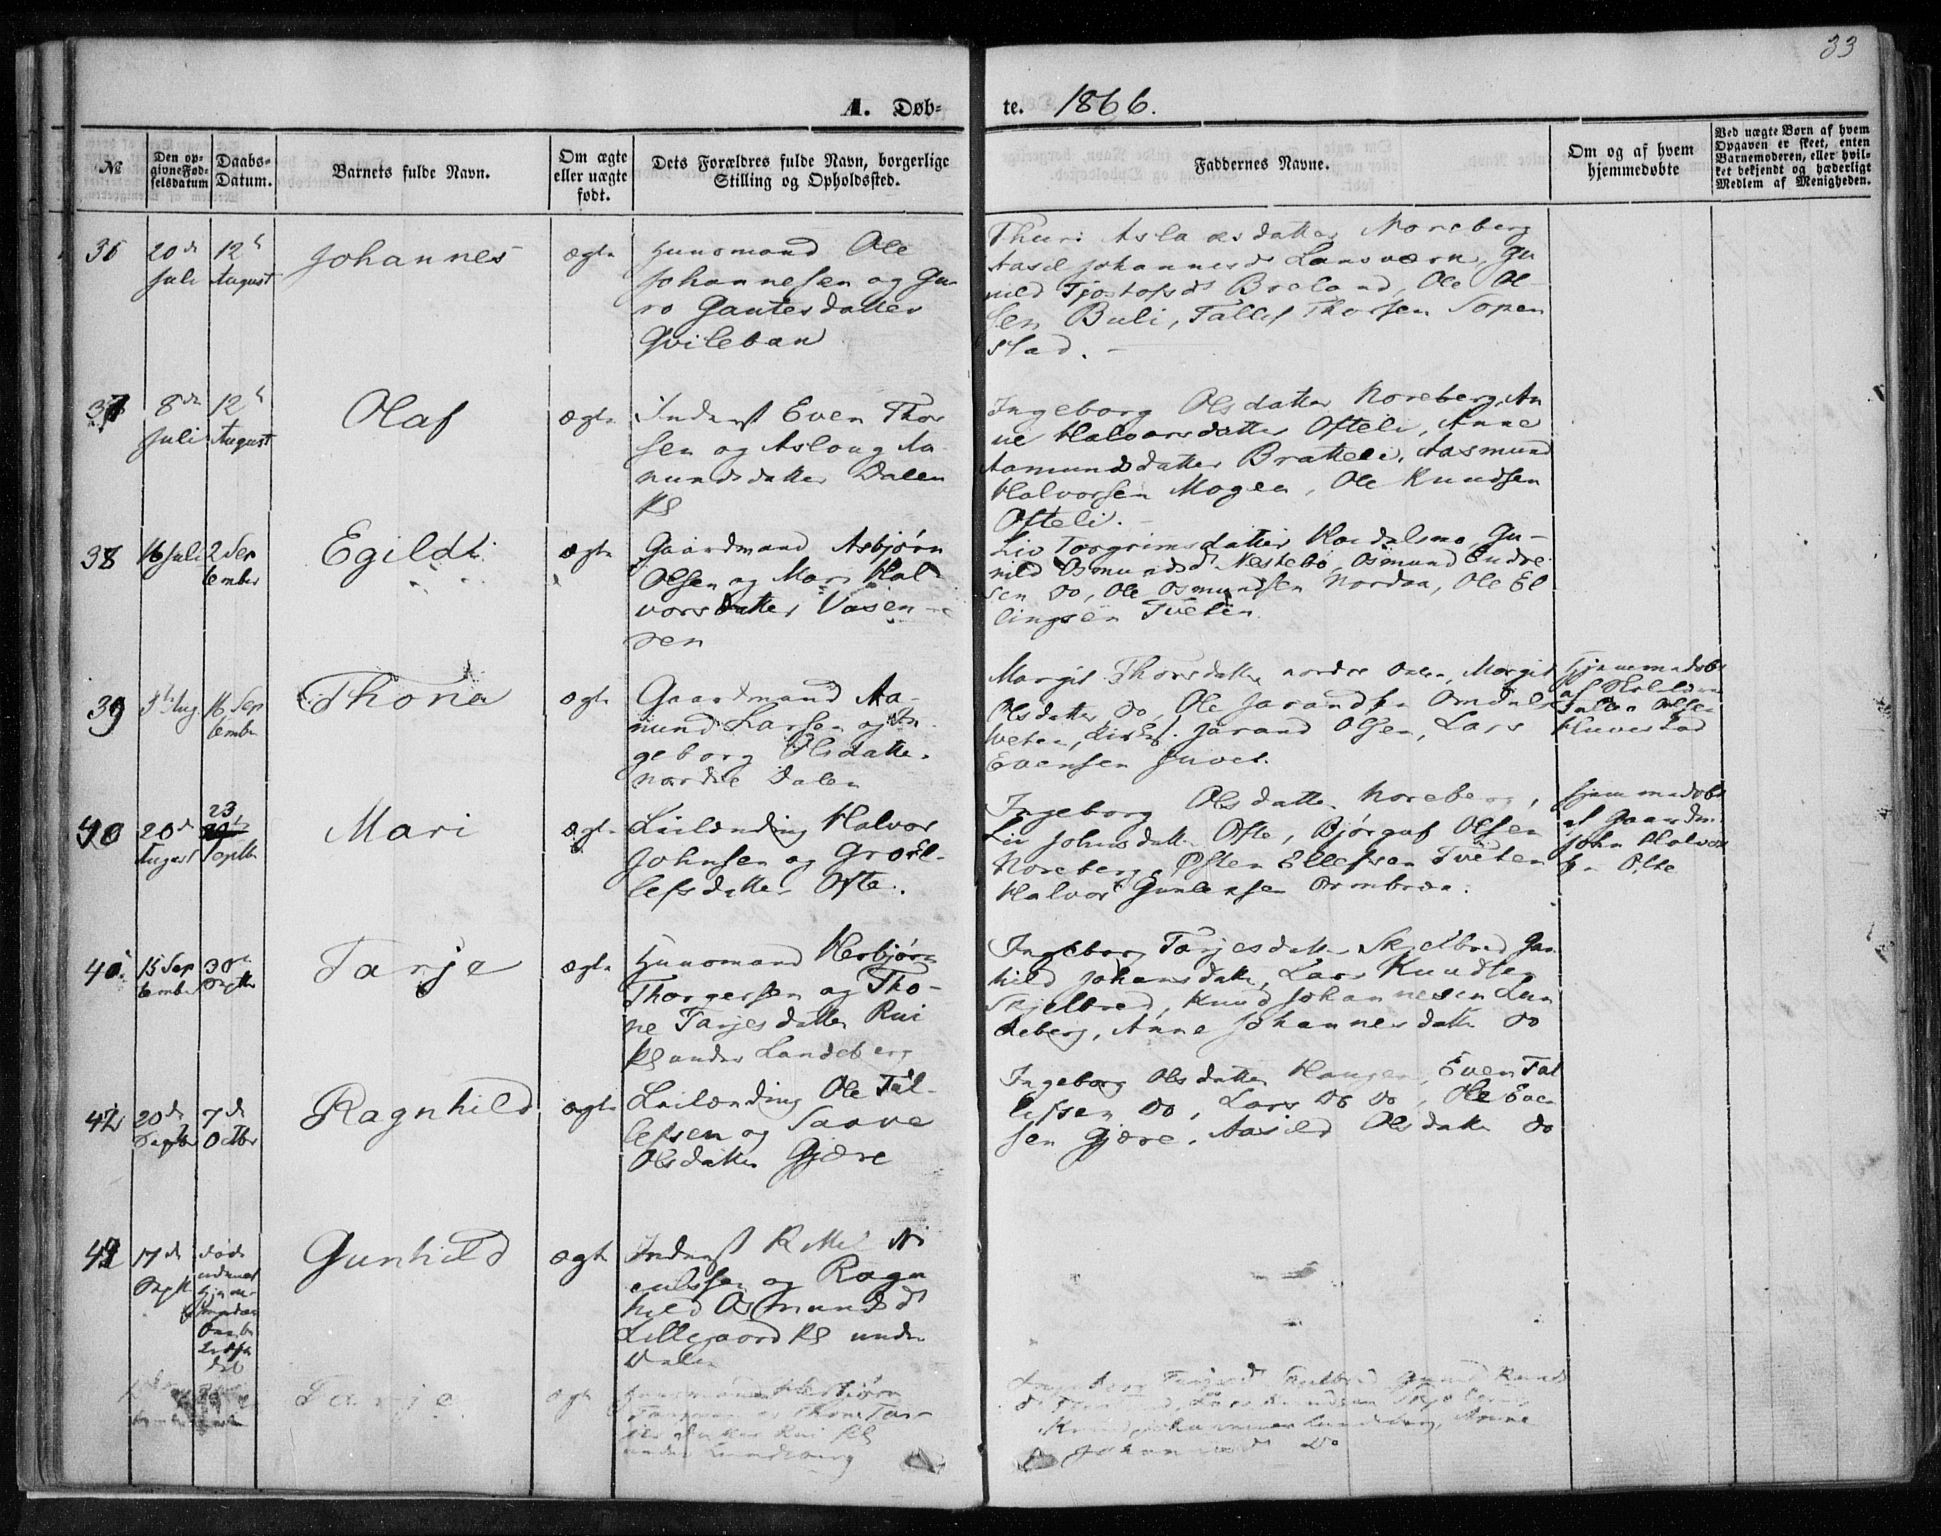 33
A. Døb-
te. 1866.
№
Den op-
givne Fød-
selsdatum
Daabs-
Datum.
Barnets fulde Navn.
Om ægte
eller uægte
født.
Dets Forældres fulde Navn, borgerlige
Stilling og Opholdssted.
Faddernes Navne.
Om og af hvem
hjemmedøbte
Ved uægte Børn af hvem
Opgaven er skeet, enten
Barnemoderen, eller hvil-
ket bekjendt og hæderligt
Medlem af Menigheden.
36
20de
Juli
12te
August
Johannes
ægte
Huusmand Ole
Johannesen og Gu
ro Gautesdatter
Hvileban
Thuri Aslaksdatter Noreberg
Aasil Johannesd Lansværn, Gu
nild Tjostofsd Breland, Ole Ol-
sen Buli, Tallef Thorsen Sopen
stad. -
37
8de
Juli
12te
August
Olaf
ægte
Inderst Even Thor
sen og Aslaug Aa-
nundsdatter Dalen
Pl
Ingeborg Olsdatter Noreberg, An
ne Halvorsdatter Ofteli, Anne
Aamundsdatter Bratteli, Aasmund
Halvorsen Mogen, Ole Knudsen
Ofteli. -
38
16 Juli
2 Sep
tember
Egild
ægte
Gaardmand Asbjørn
Olsen og Mari Hal
vorsdatter Vasen
den
Liv Torgrimsdatter Kordalsmo, Gu-
nild Osmundsd Nestebø, Osmund Endre
sen do, Ole Osmundsen Nordaa, Ole El
lingsen Tveten.
39
3die Aug
16 Sep
tember
Thone
ægte
Gaardmand Aa-
nund Larsen og In
geborg Olsdatter
nordre Dalen
Margit Thorsdatter nordre Dalen, Margit
Olsdatter do, Ole Jarandsen Omdals
tveten, Jarand Olsen, Lars
Evensen Juvet.
Hjemmedøbt
af
Olsen
Huvestad
40
20de
August
23
Septbr
Mari
ægte
Leilænding Halvor
Johnsen og Gro El-
lefsdatter Ofte.
Ingeborg Olsdatter Noreberg,
Liv Johnsdatter Ofte, Bjørguf Olsen
Noreberg, Osten Ellefsen Tveten
Halvor Gunleksen Ormbræk.
Hjemmedøbt
af Gaardm
John Halvor
sen Ofte
40
15 Sep
tember
30te
Septbr
Tarje
ægte
Huusmand Herbjørn
Thorgersen og Tho-
ne Tarjesdatter Rui
Pl under Landeberg
Ingeborg Tarjesdatter Skjelbred Gun
hild Johansdatter, Lars Knudsen
Skjelbred, Knud Johannesen Lan
deberg, Anne Johannesdatter do
42
20de
Septbr
7de
Octbr
Ragnhild
ægte
Leilænding Ole Tal-
lefsen og Saave
Olsdatter Gjære
Ingeborg Olsdatter Haugen, Even Tal
lefsen do, Lars do do, Ole Even
sen Gjære, Aasild Olsdatter do
42
17de
Septb
død
Gunhild
ægte
Inderst
og Ragn
hild Osmundsd
Lillegaard Pl under
Dalen
Tarje
ægte
Huusmand Herbjørn
og Thone Tar-
jesdatter Rui Pl
under Lundeberg
Ingeborg Tarjesd Skelbred
Lars Knudsen
Knud Johannesen Lundeberg, Anne
Johannesd do